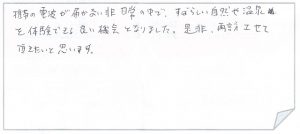 携帯の電波が届かない非日常の中で、すばらしい自然や温泉
を体験できる良い機会となりました。是非、再訪させて
頂きたいと思います。